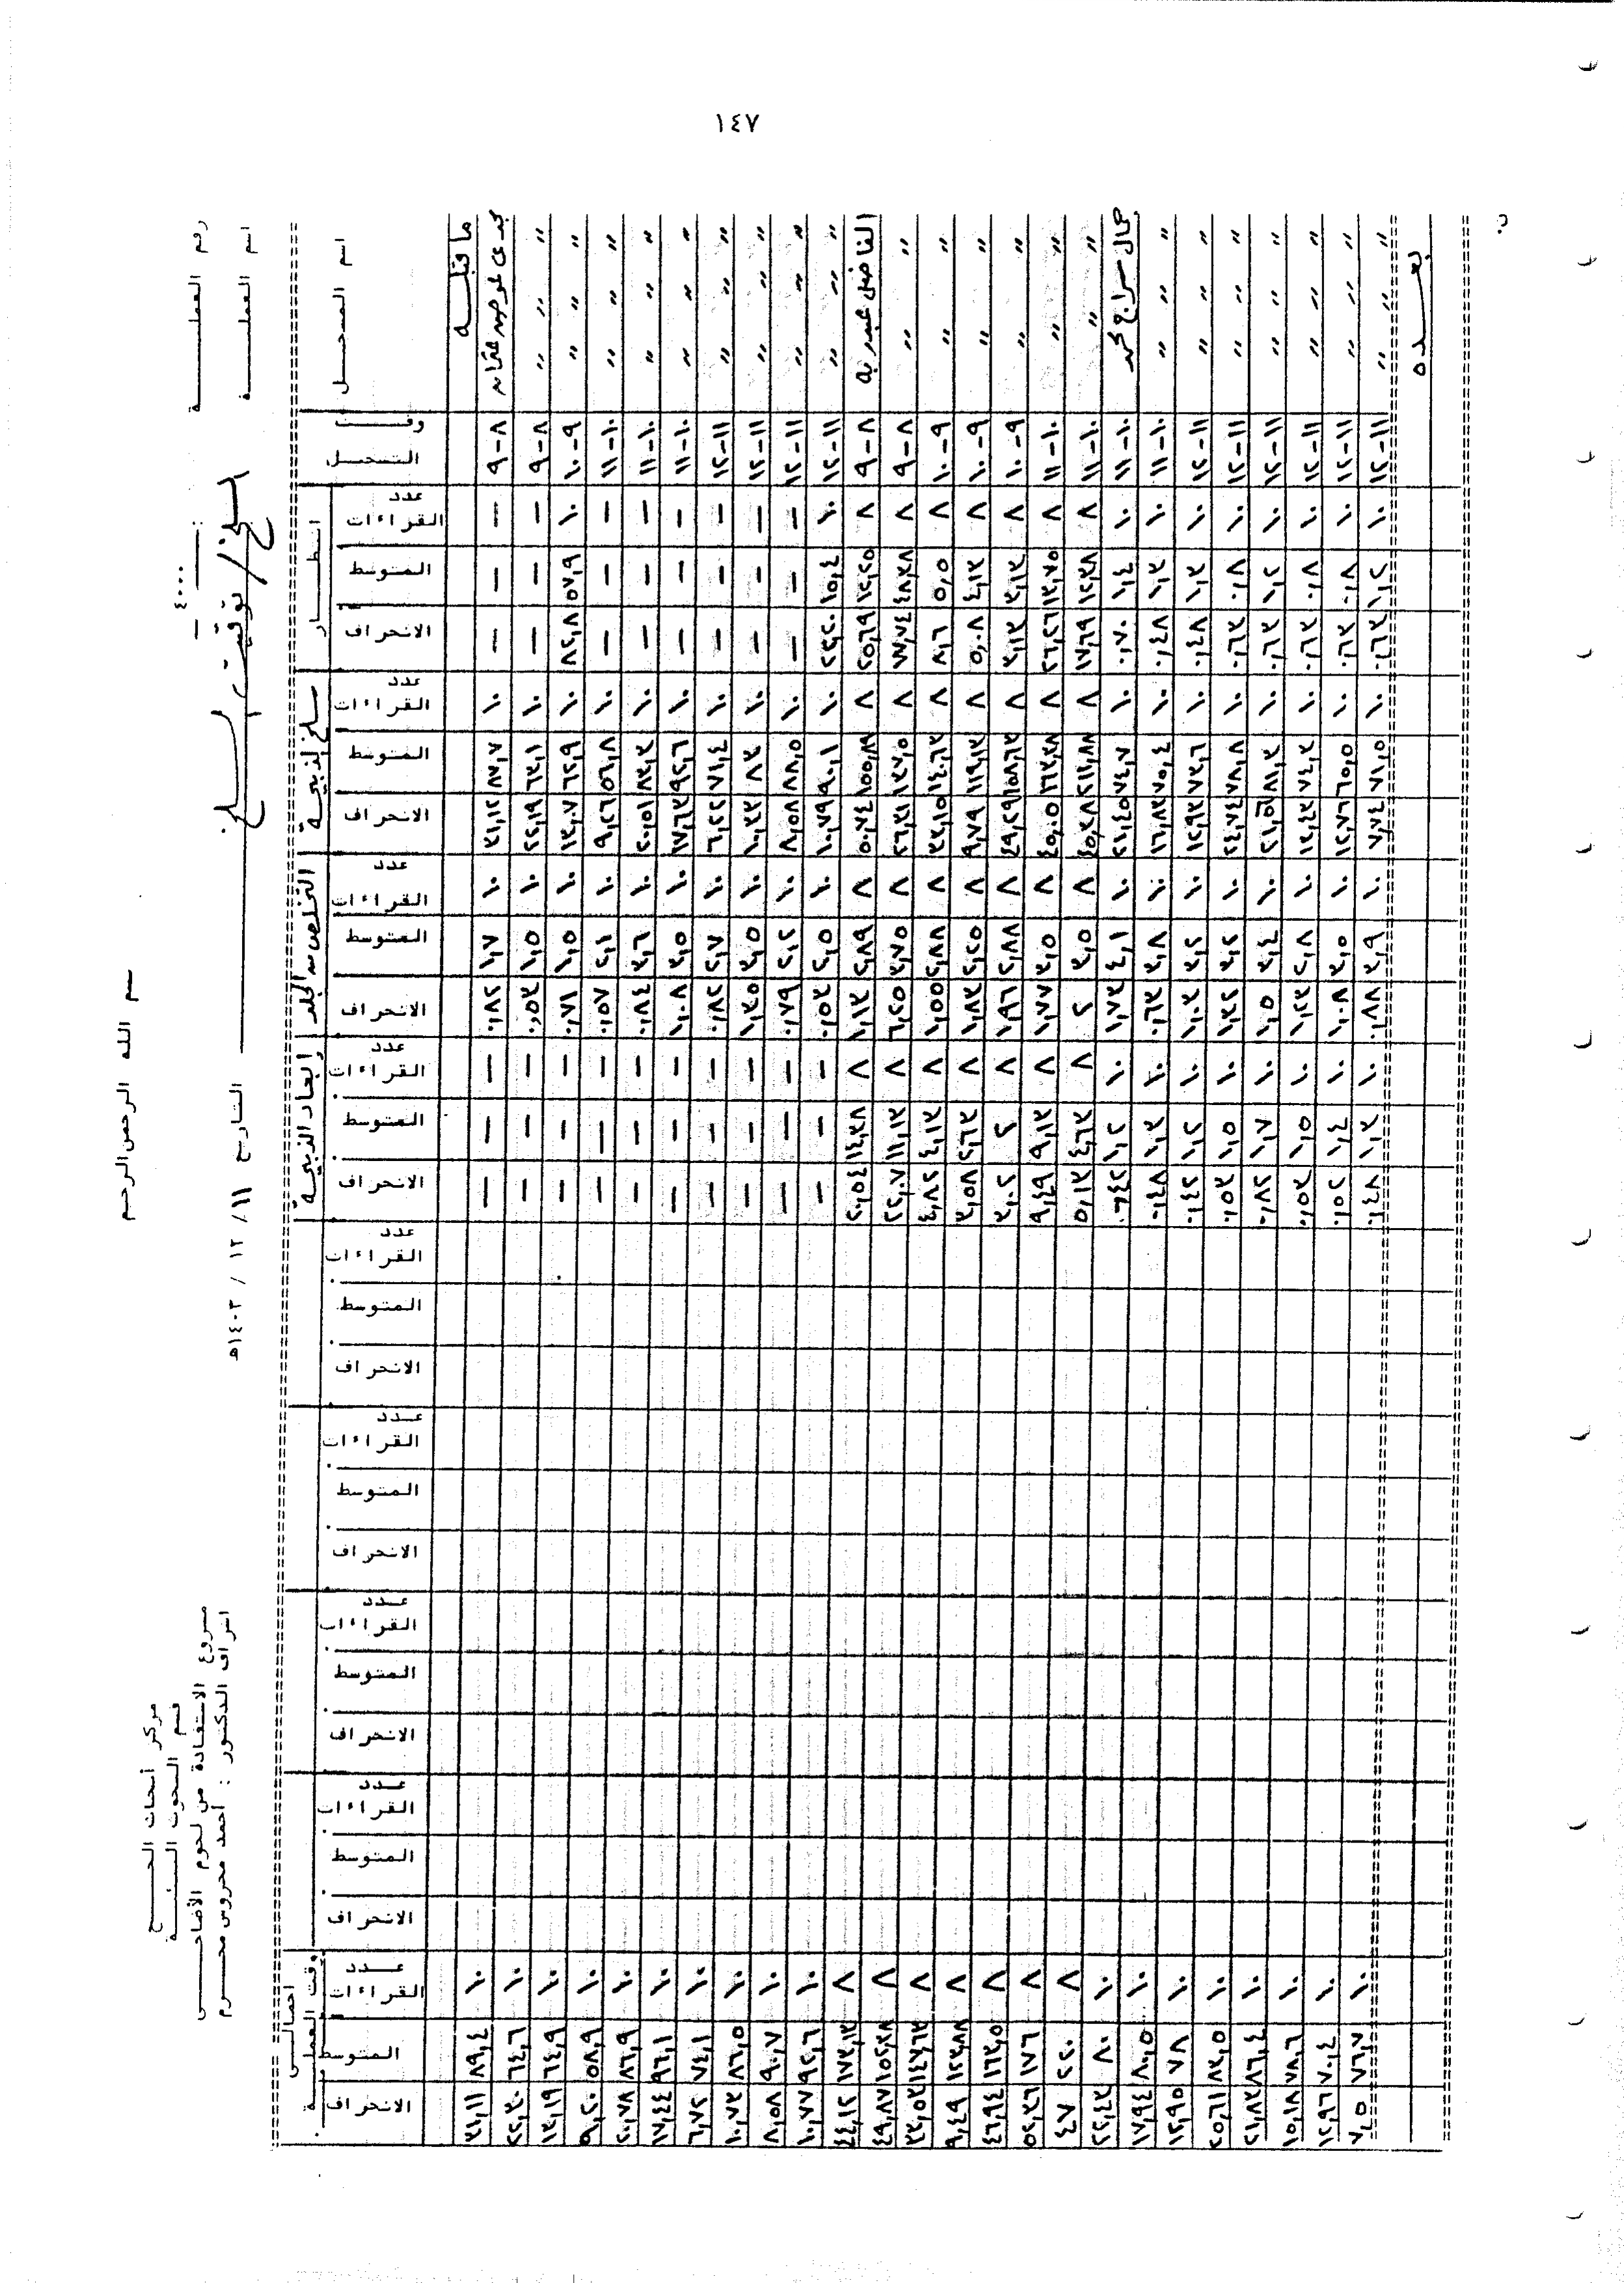 ١٤٧
بسم الله الرحمن الرحيم
مركز أبحاث الحـــج
قسم البحوث البيئيـــة
مشروع الاستفادة من لحوم الأضاحـــى
اشراف الدكتور : أحمد محروس محـــرم
رقم العمليـــــة : ٤٠٠٠
اسم العمليـــــة السلخ / توقيت السلخ
التاريخ ١١ / ١٢ / ١٤٠٣ه
اسم المسجـــل | وقـــت التسجيـــل | انتظـــار | سلخ الذبيحـــة | التخلص من الجلد | ابعاد الذبيحـــة | اجمالـــى وقت العمليـــة
عدد القراءات | المتوسط | الانحراف | عدد القراءات | المتوسط | الانحراف | عدد القراءات | المتوسط | الانحراف | عدد القراءات | المتوسط | الانحراف | عـدد القراءات | المتوسط | الانحراف | عـدد القراءات | المتوسط | الانحراف | عـدد القراءات | المتوسط | الانحراف | عـدد القراءات | المتوسط | الانحراف | عـدد القراءات | المتوسط | الانحراف
ما قبلـــه
٨-٩ | — | — | — | ١٠ | ٨٧,٧ | ٣١,١٢ | ١٠ | ١,٧ | ٠,٨٢ | — | — | — | ١٠ | ٨٩,٤ | ٣١,١١
" " " | ٨-٩ | — | — | — | ١٠ | ٦٣,١ | ٢٢,١٩ | ١٠ | ١,٥ | ٠,٥٣ | — | — | — | ١٠ | ٦٤,٦ | ٢٢,٣٠
" " " | ٩-١٠ | ١٠ | ٥٧,٩ | ٨٢,٨ | ١٠ | ٦٢,٩ | ١٣,٠٧ | ١٠ | ١,٥ | ٠,٧١ | — | — | — | ١٠ | ٦٤,٩ | ١٣,١٩
" " " | ١٠-١١ | — | — | — | ١٠ | ٥٦,٨ | ٩,٢٦ | ١٠ | ٢,١ | ٠,٥٧ | — | — | — | ١٠ | ٥٨,٩ | ٩,٢٠
" " " | ١٠-١١ | — | — | — | ١٠ | ٨٣,٣ | ٢٠,٥١ | ١٠ | ٣,٦ | ٠,٨٤ | — | — | — | ١٠ | ٨٦,٩ | ٢٠,٧٨
" " " | ١٠-١١ | — | — | — | ١٠ | ٩٢,٦ | ١٧,٦٣ | ١٠ | ٣,٥ | ١,٠٨ | — | — | — | ١٠ | ٩٦,١ | ١٧,٤٤
" " " | ١١-١٢ | — | — | — | ١٠ | ٧١,٤ | ٦,٢٢ | ١٠ | ٢,٧ | ٠,٨٢ | — | — | — | ١٠ | ٧٤,١ | ٦,٧٢
" " " | ١١-١٢ | — | — | — | ١٠ | ٨٣ | ١٠,٣٣ | ١٠ | ٣,٥ | ١,٣٥ | — | — | — | ١٠ | ٨٦,٥ | ١٠,٧٣
" " " | ١١-١٢ | — | — | — | ١٠ | ٨٨,٥ | ٨,٥٨ | ١٠ | ٢,٢ | ٠,٧٩ | — | — | — | ١٠ | ٩٠,٧ | ٨,٥٨
" " " | ١١-١٢ | ١٠ | ١٥,٤ | ٢٣,٢٠ | ١٠ | ٩٠,١ | ١٠,٧٩ | ١٠ | ٢,٥ | ٠,٥٣ | — | — | — | ١٠ | ٩٢,٦ | ١٠,٧٧
الفاضل عبدربه | ٨-٩ | ٨ | ١٢,٢٥ | ٢٥,٦٩ | ٨ | ١٥٥,٨٩ | ٥٠,٧٤ | ٨ | ٢,٨٩ | ١,١٣ | ٨ | ١٤,٣٨ | ٢٠,٥٤ | ٨ | ١٧٣,١٣ | ٤٤,١٢
" " | ٨-٩ | ٨ | ٤٨,٣٨ | ١٧,٧٤ | ٨ | ١٣٧,٥ | ٢٦,٣١ | ٨ | ٣,٧٥ | ٦,٢٥ | ٨ | ١١,١٣ | ٢٢,٠٧ | ٨ | ١٥٢,٣٨ | ٤٩,٨٧
" " | ٩-١٠ | ٨ | ٥,٥ | ٨,٦ | ٨ | ١٤٠,٦٣ | ٣٣,١٥ | ٨ | ٢,٨٨ | ١,٥٥ | ٨ | ٤,١٣ | ٤,٨٢ | ٨ | ١٤٧,٦٣ | ٣٣,٥٣
" " | ٩-١٠ | ٨ | ٤,١٣ | ٥,٠٨ | ٨ | ١١٩,١٣ | ٩,٧٩ | ٨ | ٢,٢٥ | ١,٨٣ | ٨ | ٢,٦٣ | ٣,٥٨ | ٨ | ١٢٣,٨٨ | ٩,٤٩
" " | ٩-١٠ | ٨ | ٣,١٣ | ٣,١٣ | ٨ | ١٥٨,٦٣ | ٤٩,٢٩ | ٨ | ٢,٨٨ | ١,٩٦ | ٨ | ٢ | ٣,٠٢ | ٨ | ١٦٣,٥ | ٤٦,٩٤
" " | ١٠-١١ | ٨ | ١٣,٧٥ | ٢٦,٢٦ | ٨ | ١٦٣,٣٨ | ٤٥,٠٥ | ٨ | ٣,٥ | ١,٧٧ | ٨ | ٩,١٣ | ٩,٤٩ | ٨ | ١٧٦ | ٥٢,٣٦
" " | ١٠-١١ | ٨ | ١٢,٣٨ | ١٧,٦٩ | ٨ | ٢١١,٨٨ | ٤٥,٣٨ | ٨ | ٣,٥ | ٢ | ٨ | ٤,٦٣ | ٥,١٣ | ٨ | ٢٢٠ | ٤٧
جمال سراج محمد | ١٠-١١ | ١٠ | ١,٤ | ٠,٧٠ | ١٠ | ٧٤,٧ | ٢١,٤٥ | ١٠ | ٤,١ | ١,٧٣ | ١٠ | ١,٢ | ٠,٦٤٢ | ١٠ | ٨٠ | ٢٢,٤٣
" " " | ١٠-١١ | ١٠ | ١,٣ | ٠,٤٨ | ١٠ | ٧٥,٤ | ١٦,٨٢ | ١٠ | ٣,٨ | ٠,٦٣ | ١٠ | ١,٣ | ٠,٤٨ | ١٠ | ٨٠,٥ | ١٧,٩٤
" " " | ١١-١٢ | ١٠ | ١,٣ | ٠,٤٨ | ١٠ | ٧٣,٦ | ١٢,٩٣ | ١٠ | ٣,٢ | ١,٠٣ | ١٠ | ١,٢ | ٠,٤٢ | ١٠ | ٧٨ | ١٢,٩٥
" " " | ١١-١٢ | ١٠ | ٠,٨ | ٠,٦٣ | ١٠ | ٧٨,٨ | ٢٤,٧٤ | ١٠ | ٣,٢ | ١,٣٢ | ١٠ | ١,٥ | ٠,٥٣ | ١٠ | ٨٣,٥ | ٢٥,٦١
" " " | ١١-١٢ | ١٠ | ١,٢ | ٠,٦٣ | ١٠ | ٨١,٣ | ٢١,٥٦ | ١٠ | ٣,٤ | ١,٥ | ١٠ | ١,٧ | ٠,٨٢ | ١٠ | ٨٦,٤ | ٢١,٨٣
" " " | ١١-١٢ | ١٠ | ٠,٨ | ٠,٦٣ | ١٠ | ٧٤,٣ | ١٣,٤٣ | ١٠ | ٢,٨ | ١,٢٣ | ١٠ | ١,٥ | ٠,٥٣ | ١٠ | ٧٨,٦ | ١٥,١٨
" " " | ١١-١٢ | ١٠ | ٠,٨ | ٠,٦٣ | ١٠ | ٦٥,٥ | ١٢,٧٦ | ١٠ | ٣,٥ | ١,٠٨ | ١٠ | ١,٤ | ٠,٥٢ | ١٠ | ٧٠,٤ | ١٢,٩٦
" " " | ١١-١٢ | ١٠ | ١,٢ | ٠,٦٣ | ١٠ | ٧١,٥ | ٧,٧٤ | ١٠ | ٣,٩ | ٠,٨٨ | ١٠ | ١,٣ | ٠,٤٨ | ١٠ | ٧٦,٧ | ٧,٤٥
بعـــده